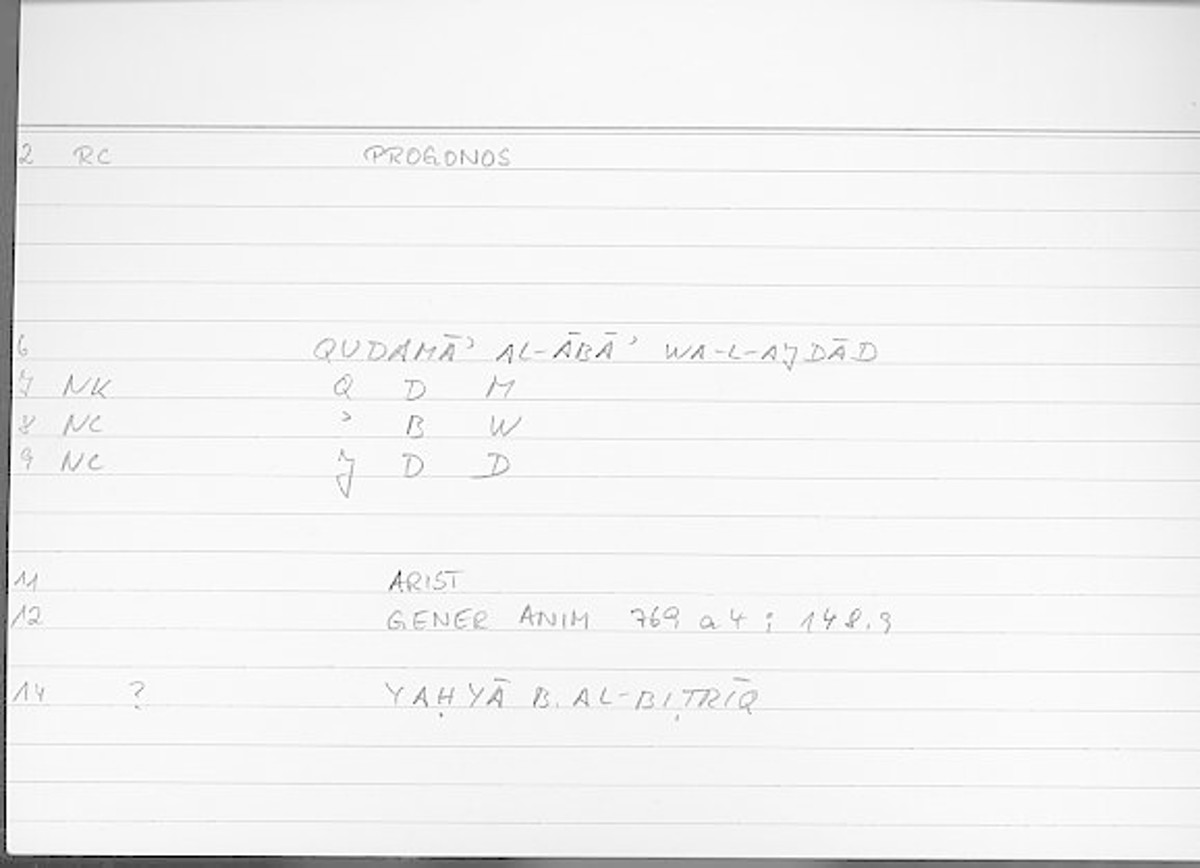 2 RC PROGONOS
6 QUDAMĀʾ AL-ĀBĀʾ WA-L-AJDĀD
7 NK Q D M
8 NC ʾ B W
9 NC J D D
11 ARIST
12 GENER ANIM 769 a 4 ; 148.9
14 ? YAḤYĀ B. AL-BIṬRĪQ